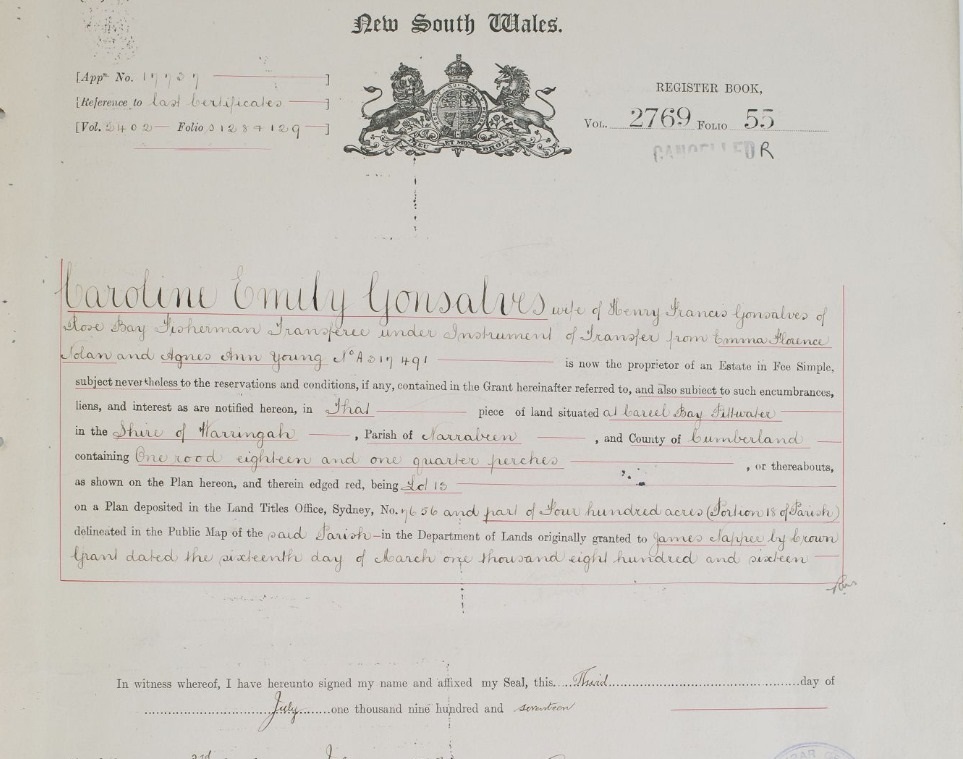 New South Wales.
[Appn. No. 17737 ]
[Reference to last Certificates ]
[Vol. 2402 Folios 128 & 129 ]
REGISTER BOOK,
VOL. 2769 FOLIO 55
CANCELLED R
ET MON DROIT
Caroline Emily Gonsalves wife of Henry Francis Gonsalves of
Rose Bay Fisherman Transferee under Instrument of Transfer from Emma Florence
Nolan and Agnes Ann Young No A317491 is now the proprietor of an Estate in Fee Simple,
subject nevertheless to the reservations and conditions, if any, contained in the Grant hereinafter referred to, and also subject to such encumbrances,
liens, and interest as are notified hereon, in That piece of land situated at Careel Bay Pittwater
in the Shire of Warringah , Parish of Narrabeen , and County of Cumberland
containing One rood eighteen and one quarter perches , or thereabouts,
as shown on the Plan hereon, and therein edged red, being Lot 13
on a Plan deposited in the Land Titles Office, Sydney, No. 7656 and part of Four hundred acres (Portion 18 of Parish)
delineated in the Public Map of the said Parish in the Department of Lands originally granted to James Napper by Crown
Grant dated the sixteenth day of March one thousand eight hundred and sixteen
In witness whereof, I have hereunto signed my name and affixed my Seal, this Third day of
July one thousand nine hundred and seventeen